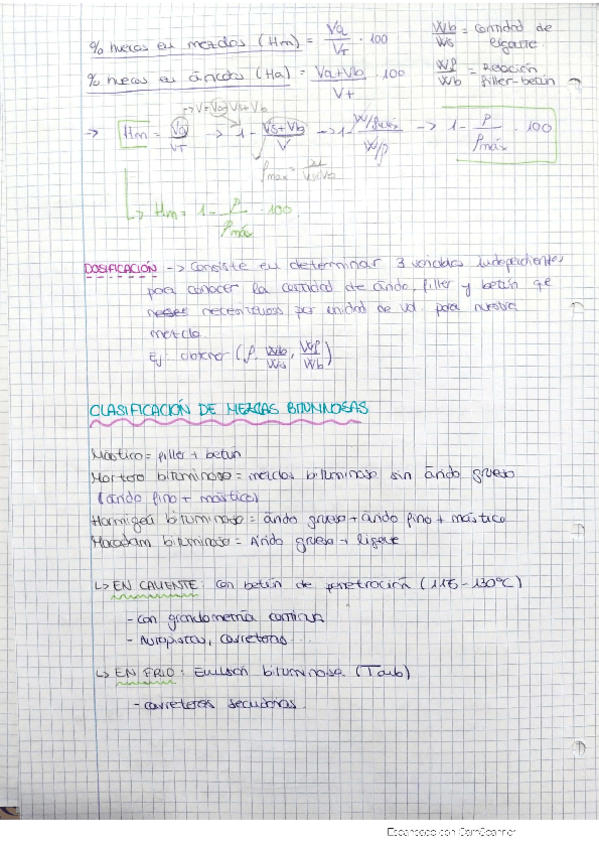 % huecos en mezclas (Hm) = Va/VT · 100
Wb/Ws = Cantidad de ligante
% huecos en áridos (Ha) = Va+Vb/VT · 100
Wf/Wb = Relación filler-betún
→ V=Va+Vs+Vb
→ Hm = Va/VT → 1 - Vs+Vb/V → 1 - W/ρmáx / W/ρ → 1 - ρ/ρmáx · 100
ρmax =
↳ Hm = 1 - ρ/ρmáx · 100
DOSIFICACIÓN → Consiste en determinar 3 variables independientes
para conocer la cantidad de árido, filler y betún qe
necesitamos por unidad de vol. para nuestra
mezcla.
Ej: obtener (ρ, Wb/Ws, Wf/Wb)
CLASIFICACIÓN DE MEZCLAS BITUMINOSAS
Mástico = filler + betún
Mortero bituminoso = mezclas bituminosa sin árido grueso
(árido fino + mástico)
Hormigón bituminoso = árido grueso + árido fino + mástico
Macadam bituminoso = Árido grueso + ligante
↳ EN CALIENTE: Con betún de penetración (115-130ºC)
- con granulometría continua
- Autopistas, carreteras ...
↳ EN FRIO: Emulsión bituminosa (Tamb)
- carreteras secundarias
Escaneado con CamScanner